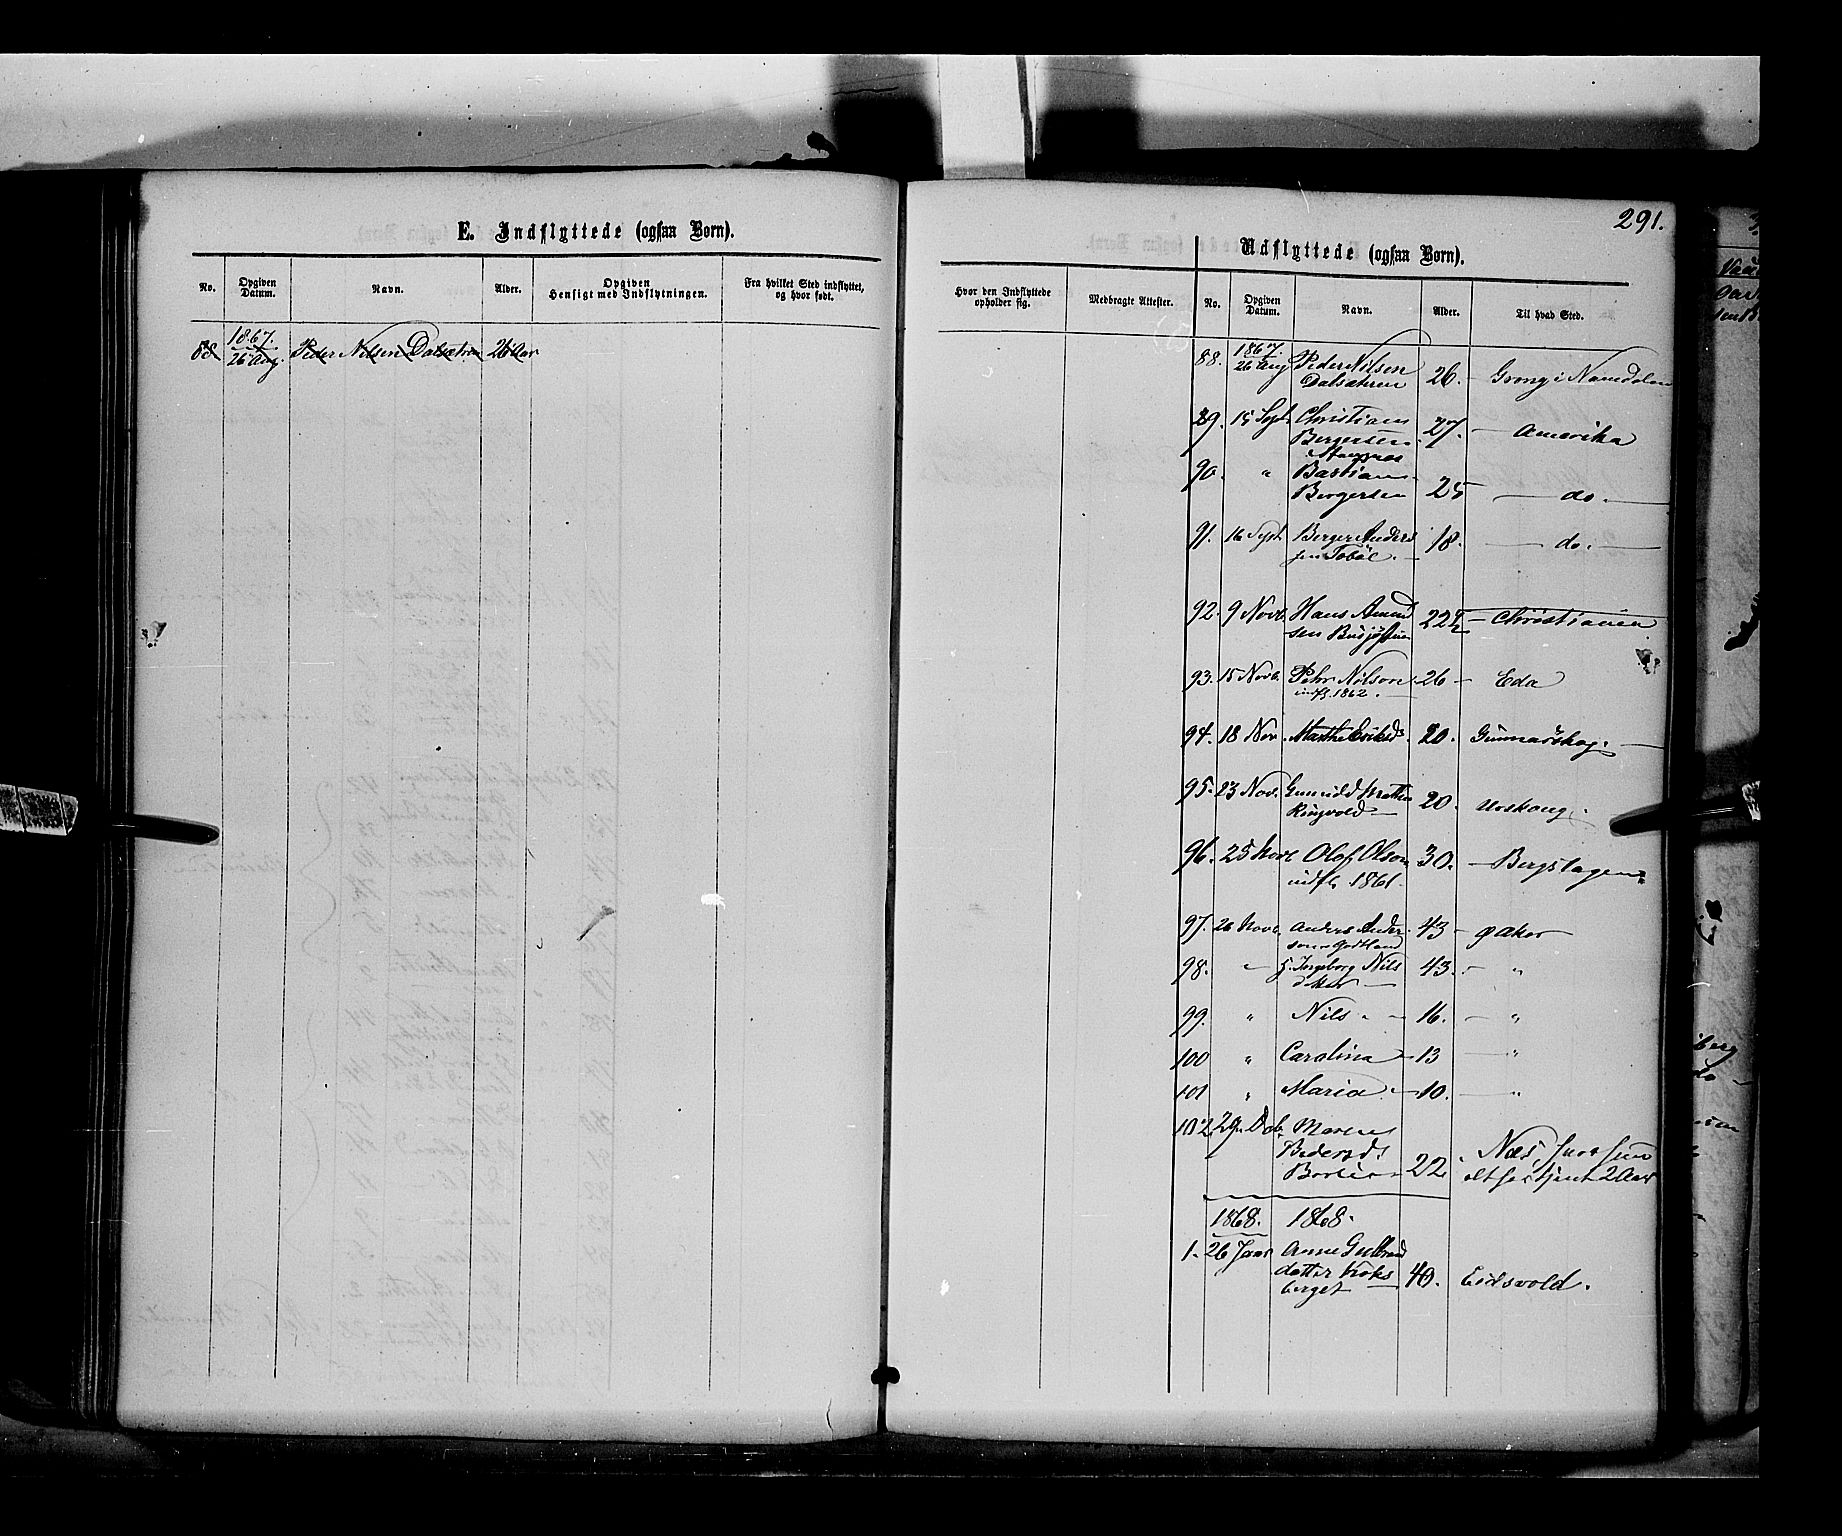 E. Indflyttede (ogsaa Børn).
No. Opgiven Datum. Navn. Alder. Opgiven Hensigt med Indflytningen. Fra hvilket Sted indflyttet, og hvor født.
1867.
88 26 Aug. Peder Nilsen Dalsætren 26 Aar
291.
Udflyttede (ogsaa Børn).
Hvor den Indflyttede opholder sig. Medbragte Attester. No. Opgiven Datum. Navn. Alder. Til hvad Sted.
1867.
88. 26 Aug Peder Nilsen
Dalsætren 26. Grong i Namdalen
89. 15 Sept. Christian
Bergersen 27. Amerika
90. " Bastian
Bergersen 25 do.
91. 16 Sept. Berger Anders
sen Tobøl. 18. do.
92. 9 Novb. Hans Amund
sen 22½ Christiania
93. 15 Novb. Pehr Nilson 26 Eda
indfl. 1862.
94. 18 Nov. Marthe Eriksd. 20. Gunnarskog.
95. 23 Nov.
Ringvold 20. Urskoug.
96. 25 Novb Olof Olson 30. Bergslagen
indfl. 1861.
97. 26 Novb. Anders Ander-
son 43
98. " Ingeborg Nils
datter 43. "
99. " Nils 16. "
100 " Carolina 13 "
101 " Maria 10. "
102. 29. Deb. Maren
Pedersd. Næs, hvor hun
22. altfor tjent 2 Aar
1868. 1868.
1. 26 Janr Anne Gulbrand
datter Kroks
berget 40. Eidsvold.